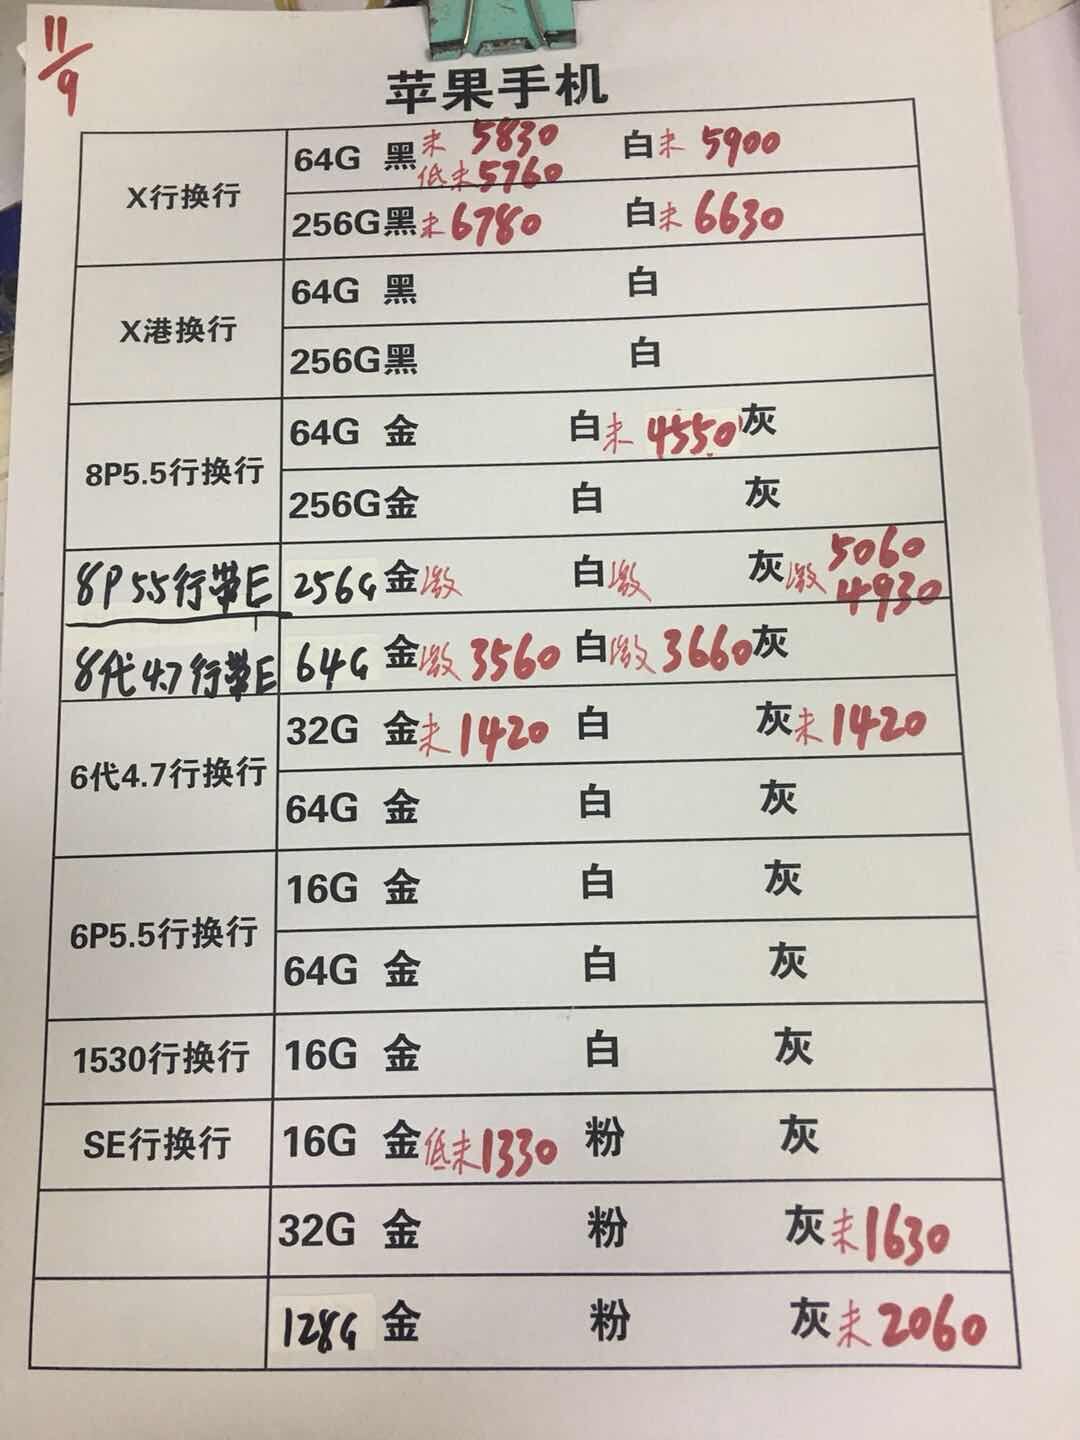 11/9
苹果手机
X行换行 64G 黑未 5830 白未 5900
低未5760
256G黑未6780 白未6630
X港换行 64G 黑 白
256G黑 白
8P5.5行换行 64G 金 白未 4550 灰
256G金 白 灰
8P5.5行带E 256G 金激 白激 灰激 5060
4930
8代4.7行带E 64G 金激3560 白激3660灰
6代4.7行换行 32G 金未1420 白 灰未1420
64G 金 白 灰
6P5.5行换行 16G 金 白 灰
64G 金 白 灰
1530行换行 16G 金 白 灰
SE行换行 16G 金低未1330 粉 灰
32G 金 粉 灰未1630
128G 金 粉 灰未2060